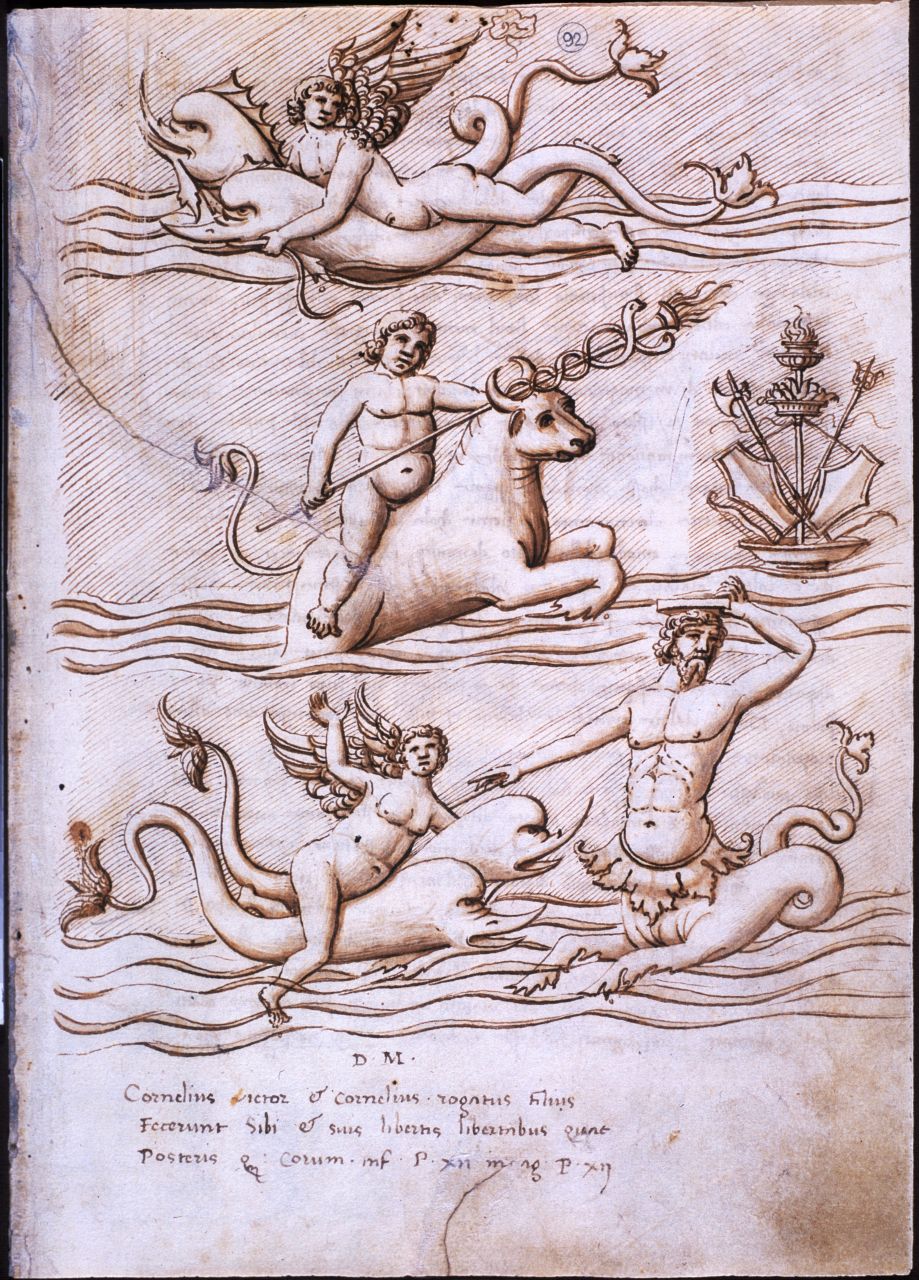 92
D M ·
Cornelius victor & Cornelius · rogatus filius
Fecerunt Sibi & suis libertis libertabus
Posteris q Eorum · inf · P · XII in · ag P · XII